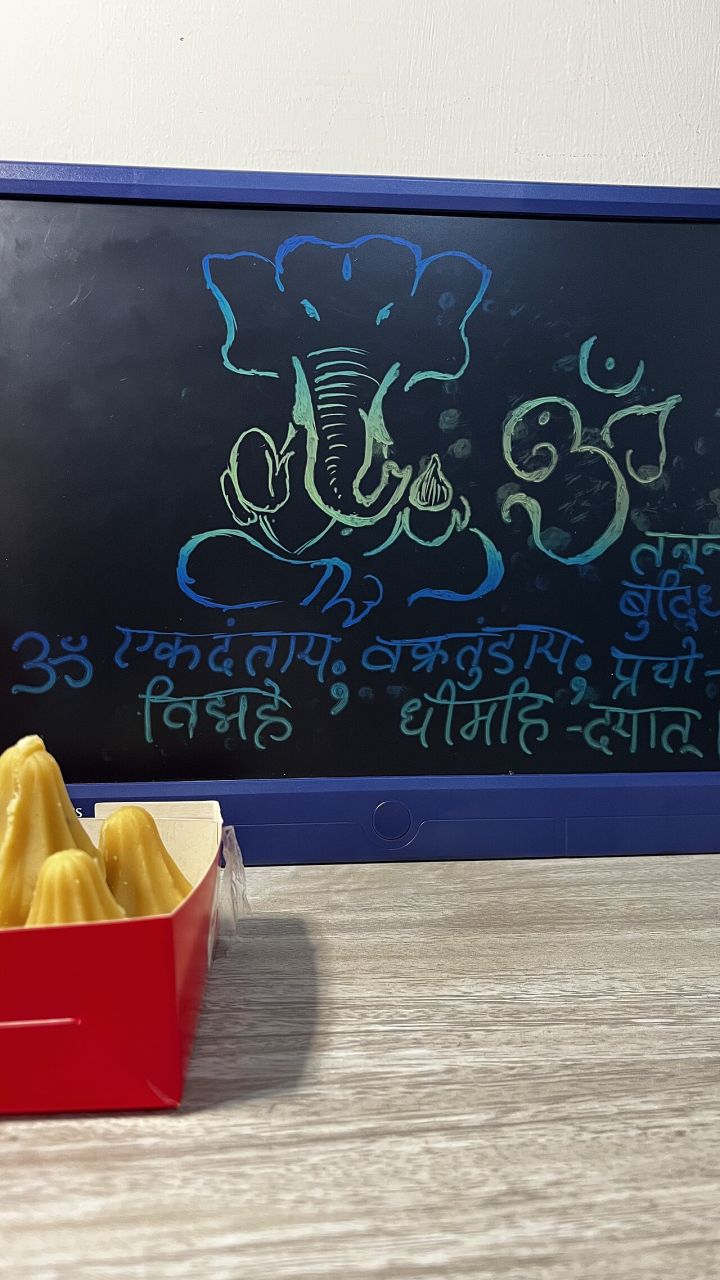 ॐ
बुद्धि
ॐ एकदंताय, वक्रतुंडाय, प्रचो-
विद्महे धीमहि -दयात् ।